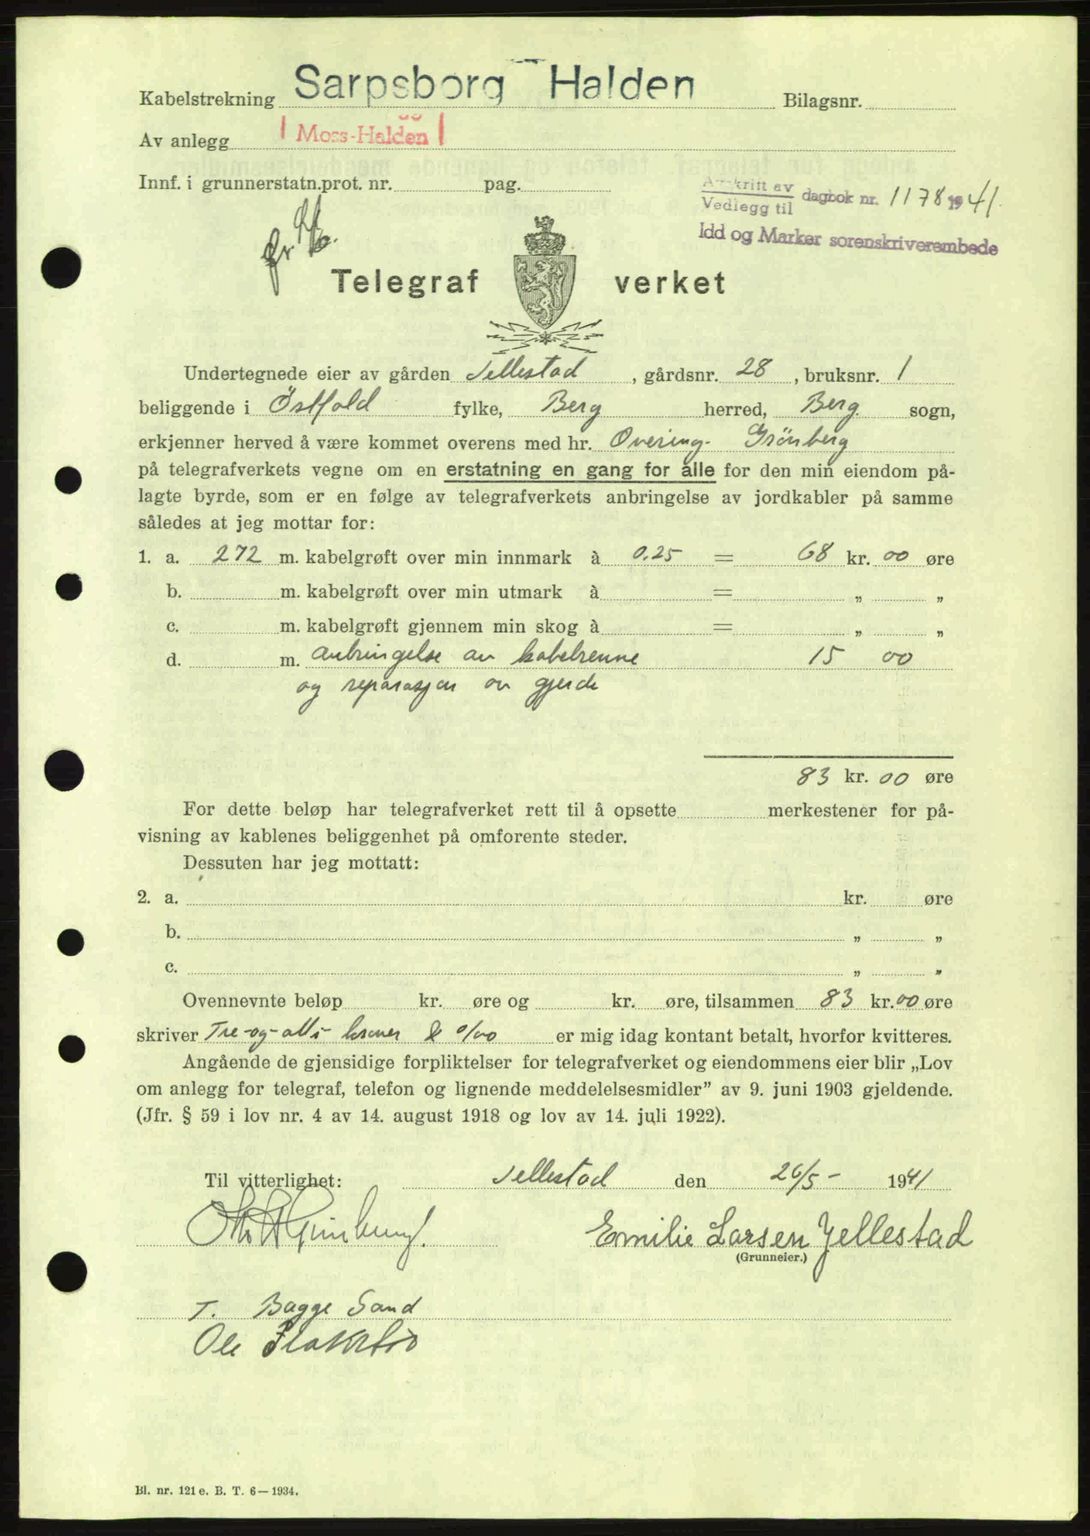 Kabelstrekning Sarpsborg - Halden Bilagsnr.
Av anlegg Moss-Halden
Innf. i grunnerstatn.prot. nr. pag.
Avskrift av
Vedlegg til dagbok nr. 1178 1941.
Idd og Marker sorenskriverembede
Telegraf verket
Undertegnede eier av gården Jellestad, gårdsnr. 28, bruksnr. 1
beliggende i Östfold fylke, Berg herred, Berg sogn,
erkjenner herved å være kommet overens med hr. Overing. Grönberg
på telegrafverkets vegne om en erstatning en gang for alle for den min eiendom på-
lagte byrde, som er en følge av telegrafverkets anbringelse av jordkabler på samme
således at jeg mottar for:
1. a. 272 m. kabelgrøft over min innmark à 0.25 = 68 kr. 00 øre
b. m. kabelgrøft over min utmark à = „ „
c. m. kabelgrøft gjennem min skog à = „ „
d. m. anbringelse av kabelrenne 15 00
og reparasjon av gjerde
83 kr. 00 øre
For dette beløp har telegrafverket rett til å opsette merkestener for på-
visning av kablenes beliggenhet på omforente steder.
Dessuten har jeg mottatt:
2. a. kr. øre
b. „ „
c. „ „
Ovennevnte beløp kr. øre og kr. øre, tilsammen 83 kr. 00 øre
skriver Tre-og-otti kroner & 0/00 er mig idag kontant betalt, hvorfor kvitteres.
Angående de gjensidige forpliktelser for telegrafverket og eiendommens eier blir „Lov
om anlegg for telegraf, telefon og lignende meddelelsesmidler” av 9. juni 1903 gjeldende.
(Jfr. § 59 i lov nr. 4 av 14. august 1918 og lov av 14. juli 1922).
Til vitterlighet: Jellestad den 26/5- 1941
Emilie Larsen Jellestad
(Grunneier.)
T. Bagge Sand
Ole
Bl. nr. 121 e. B. T. 6—1934.